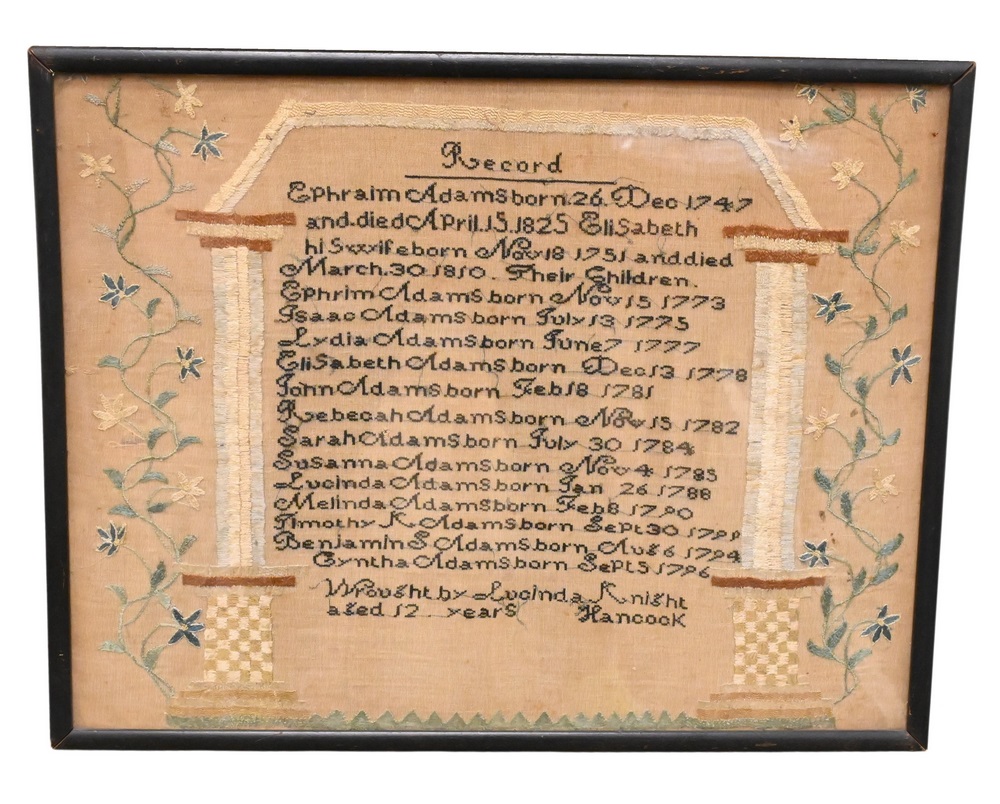 Record
Ephraim Adams born 26. Dec 1747
and died April.15.1825 Elisabeth
his wife born Nov 18 1751 and died
March.30.1810. Their Children.
Ephrim Adams born Nov 15 1773
Isaac Adams born July 13 1775
Lydia Adams born June 7 1777
Elisabeth Adams born Dec 13 1778
John Adams born Feb 18 1781
Rebecah Adams born Nov 15 1782
Sarah Adams born July 30 1784
Susanna Adams born Nov 4 1785
Lucinda Adams born Jan 26 1788
Melinda Adams born Feb 8 1790
Timothy K Adams born Sept 30
Benjamin S Adams born Aug 6 1794
Cyntha Adams born Sept 5 1796
Wrought by Lucinda Knight
aged 12 years Hancook